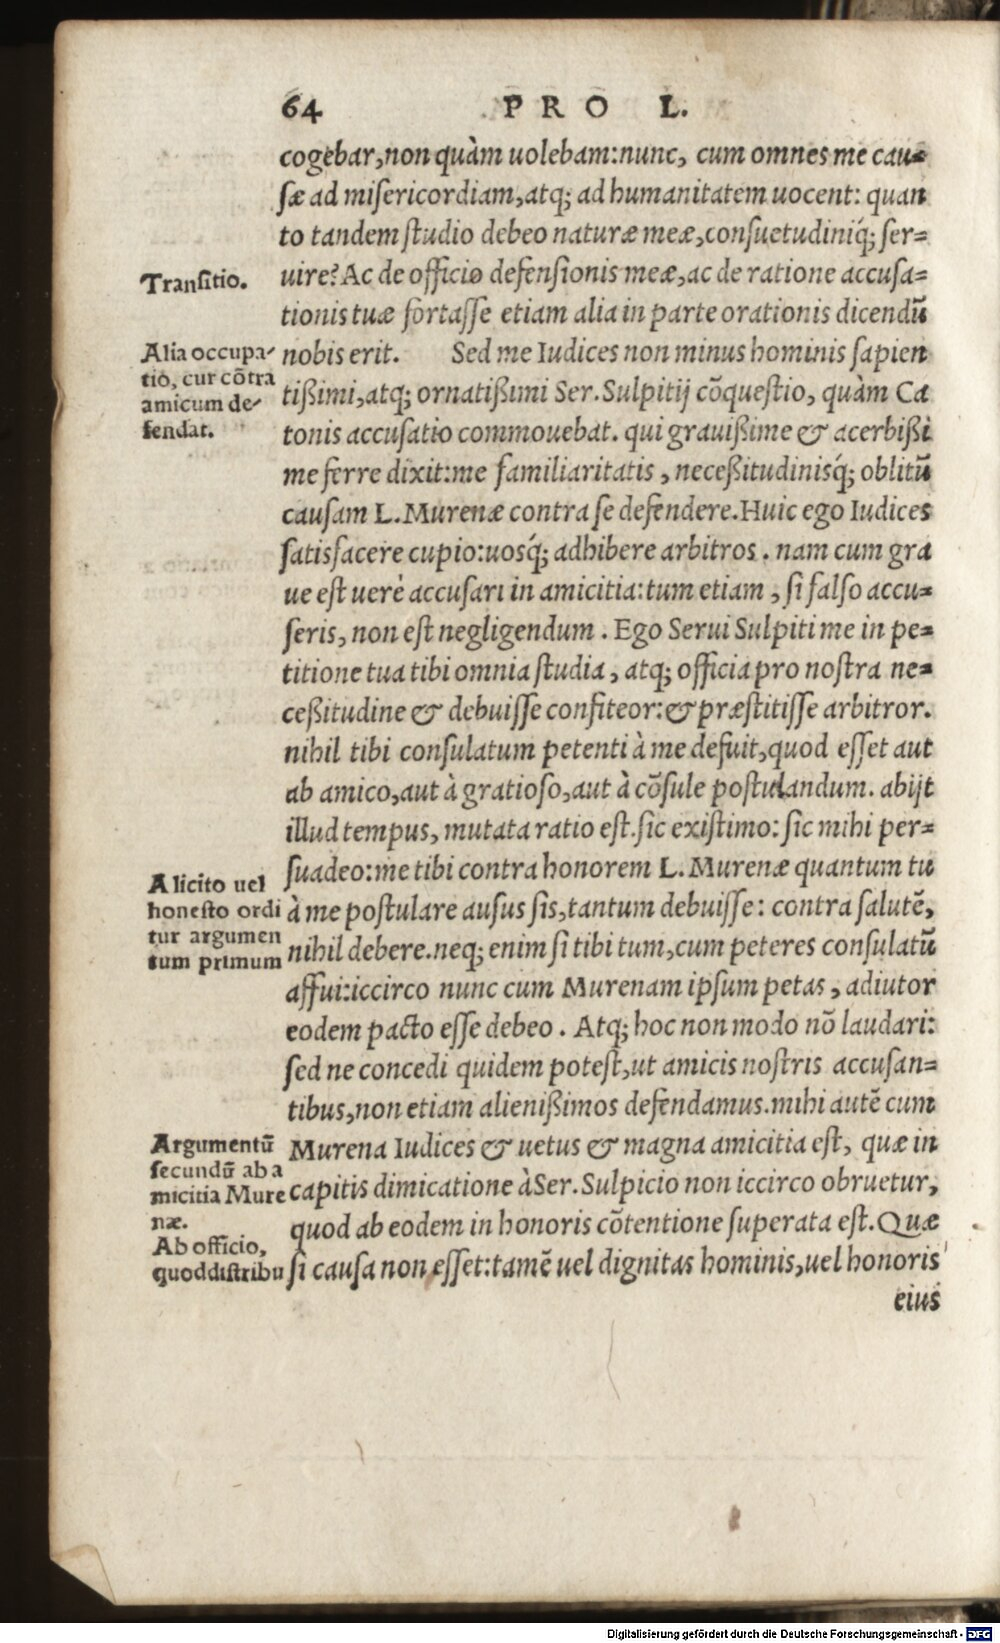 64 PRO L.
cogebar, non quàm uolebam: nunc, cum omnes me cau=
sæ ad misericordiam, atq; ad humanitatem uocent: quan
to tandem studio debeo naturæ meæ, consuetudiniq́; ser=
Transitio.
uire? Ac de officio defensionis meæ, ac de ratione accusa=
tionis tuæ fortasse etiam alia in parte orationis dicendū
Alia occupa-
tio, cur cōtra
amicum de-
fendat.
nobis erit. Sed me Iudices non minus hominis sapien
tißimi, atq; ornatißimi Ser. Sulpitij cōquestio, quàm Ca
tonis accusatio commouebat. qui grauißime & acerbißi
me ferre dixit: me familiaritatis, neceßitudinisq́; oblitū
causam L. Murenæ contra se defendere. Huic ego Iudices
satisfacere cupio: uosq́; adhibere arbitros. nam cum gra
ue est uerè accusari in amicitia: tum etiam, si falso accu=
seris, non est negligendum. Ego Serui Sulpiti me in pe=
titione tua tibi omnia studia, atq; officia pro nostra ne=
ceßitudine & debuisse confiteor: & præstitisse arbitror.
nihil tibi consulatum petenti à me defuit, quod esset aut
ab amico, aut à gratioso, aut à cōsule postulandum. abijt
illud tempus, mutata ratio est. sic existimo: sic mihi per=
suadeo: me tibi contra honorem L. Murenæ quantum tu
A licito uel
honesto ordi
tur argumen
tum primum
à me postulare ausus sis, tantum debuisse: contra salutē,
nihil debere. neq; enim si tibi tum, cum peteres consulatū
affui: iccirco nunc cum Murenam ipsum petas, adiutor
eodem pacto esse debeo. Atq; hoc non modo nō laudari:
sed ne concedi quidem potest, ut amicis nostris accusan=
tibus, non etiam alienißimos defendamus. mihi autē cum
Argumentū
secundū ab a
micitia Mure
næ.
Murena Iudices & uetus & magna amicitia est, quæ in
capitis dimicatione à Ser. Sulpicio non iccirco obruetur,
quod ab eodem in honoris cōtentione superata est. Quæ
Ab officio,
quod distribu
si causa non esset: tamē uel dignitas hominis, uel honoris
eius
Digitalisierung gefördert durch die Deutsche Forschungsgemeinschaft - DFG